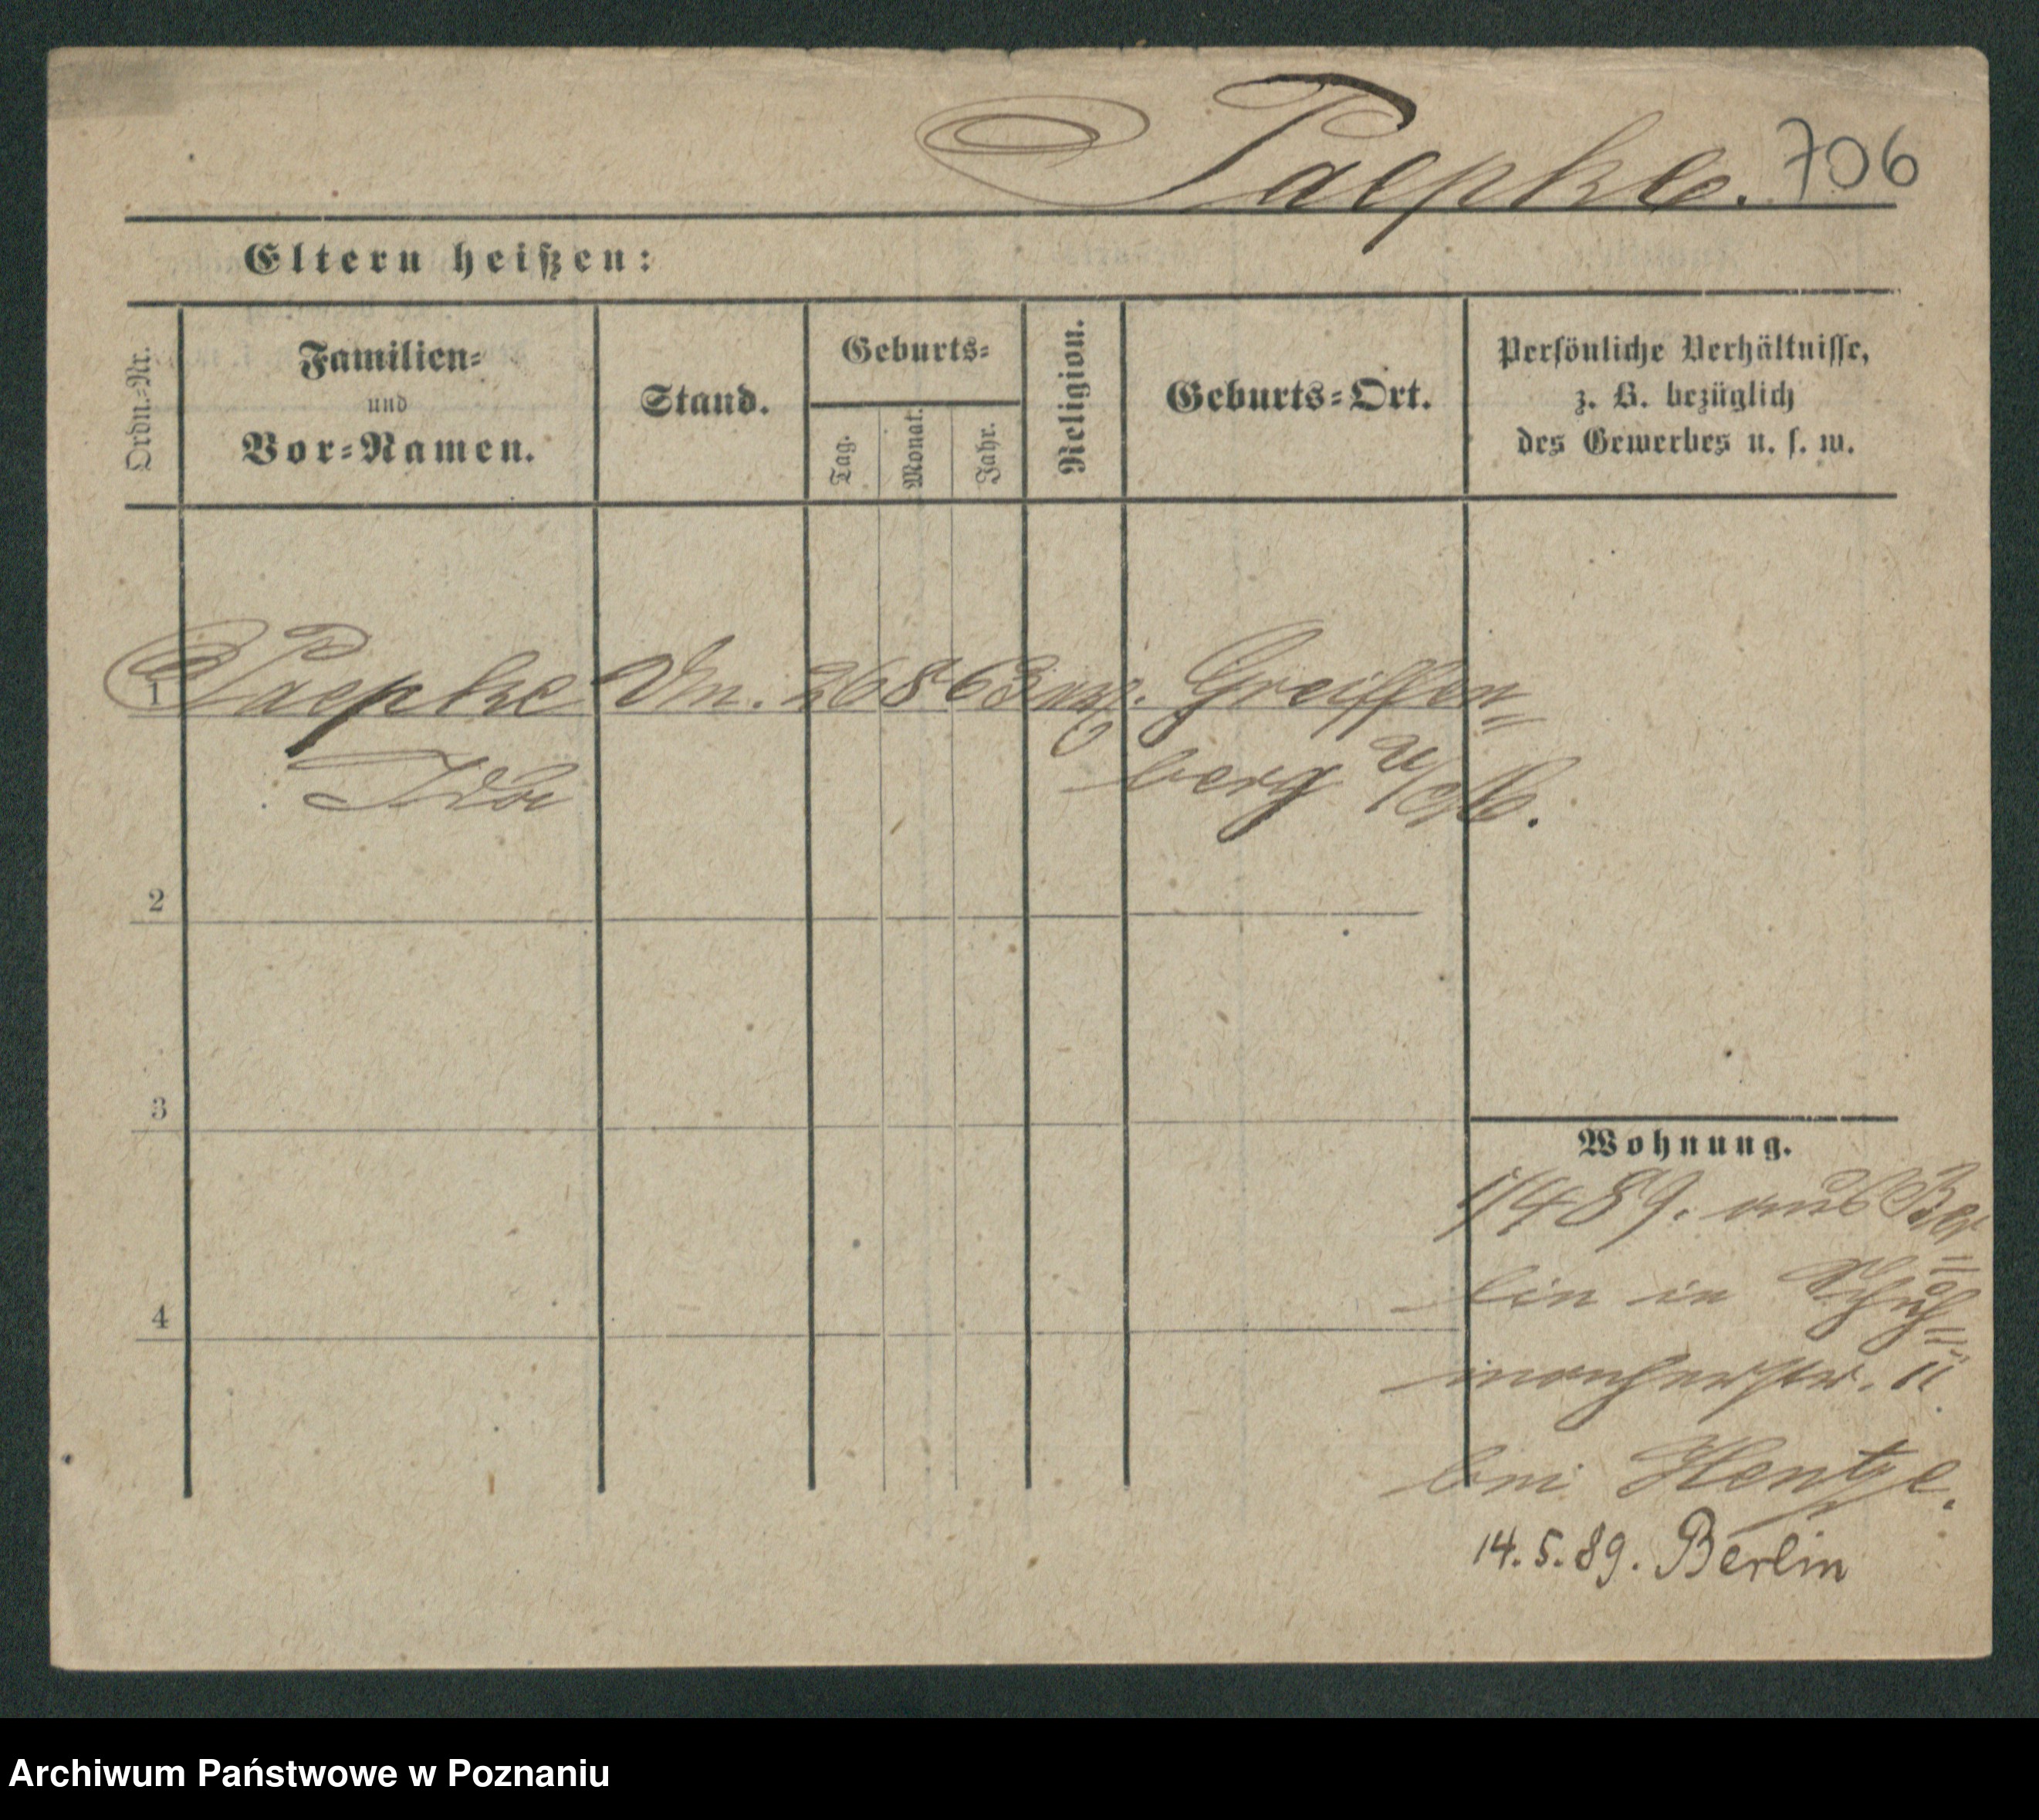 Paepke. 706
Eltern heißen:
Ordn.-Nr.
Familien-
und
Vor-Namen.
Stand.
Geburts-
Tag.
Monat.
Jahr.
Religion.
Geburts-Ort.
Persönliche Verhältnisse,
z. B. bezüglich
des Gewerbes u. s. w.
1 Paepke 26 8 63 evg. Greiffen=
Ida berg
2
3
4
Wohnung.
1/4 89. aus Ber=
lin in Schuh=
macherstr. 11
bei Hentze.
14.5.89. Berlin
Archiwum Państwowe w Poznaniu